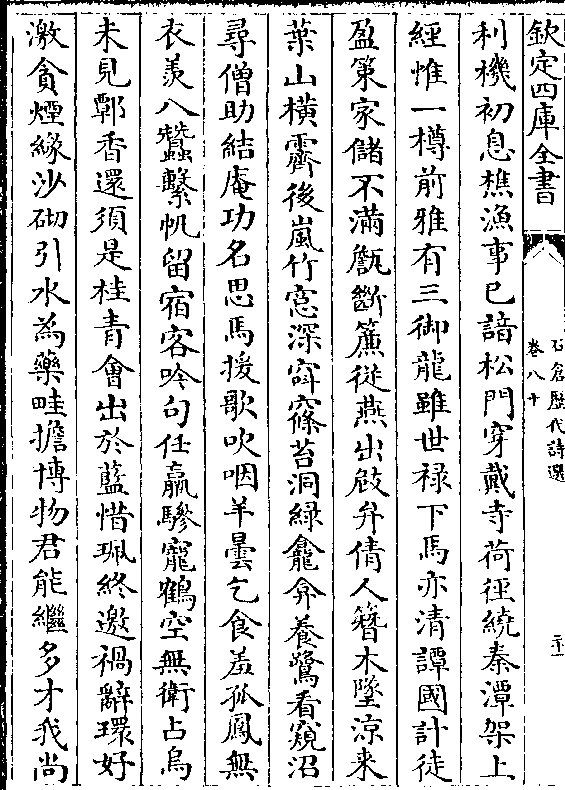 欽定四庫全書
石倉歷代詩選
卷八十
利機初息樵漁事已諳松門穿戴寺荷徑繞秦潭架上
經惟一樽前雅有三御龍雖世禄下馬亦清譚國計徒
盈策家儲不滿甔斷簾從燕出攲弁倩人簪木墜涼来
葉山橫霽後嵐竹窓深窅窱苔洞綠龕弇養鷺看窺沼
尋僧助結庵功名思馬援歌吹咽羊曇乞食羞孤鳳無
衣羨八蠶繫帆留宿客吟句任羸驂寵鶴空無衛占烏
未見鄲香還須是桂青會出於藍惜珮終邀禍辭環好
激貪煙緣沙砌引水為藥畦擔博物君能繼多才我尚